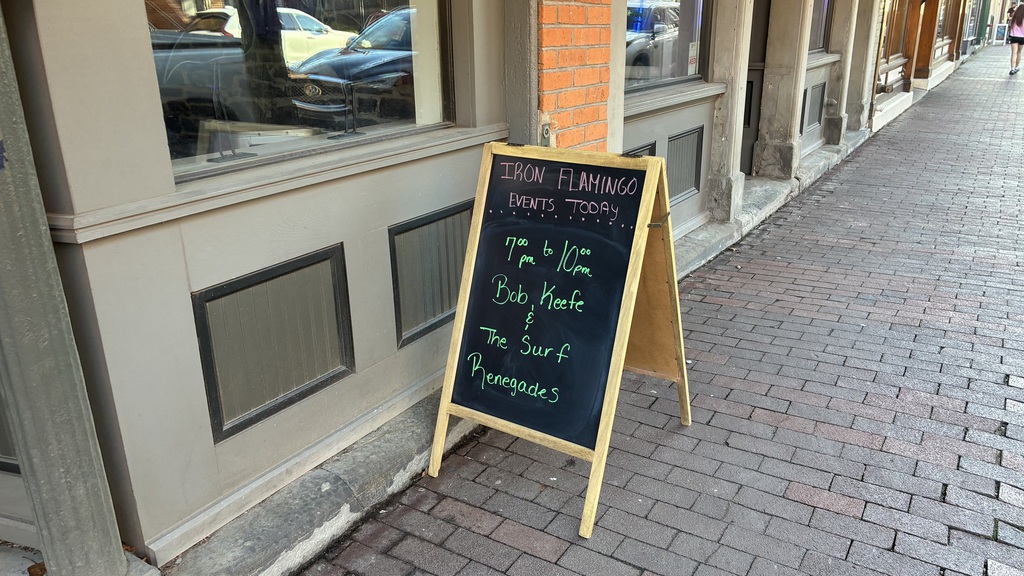 IRON FLAMINGO
EVENTS TODAY
7:00 pm to 10:00 pm
Bob Keefe
&
The Surf
Renegades